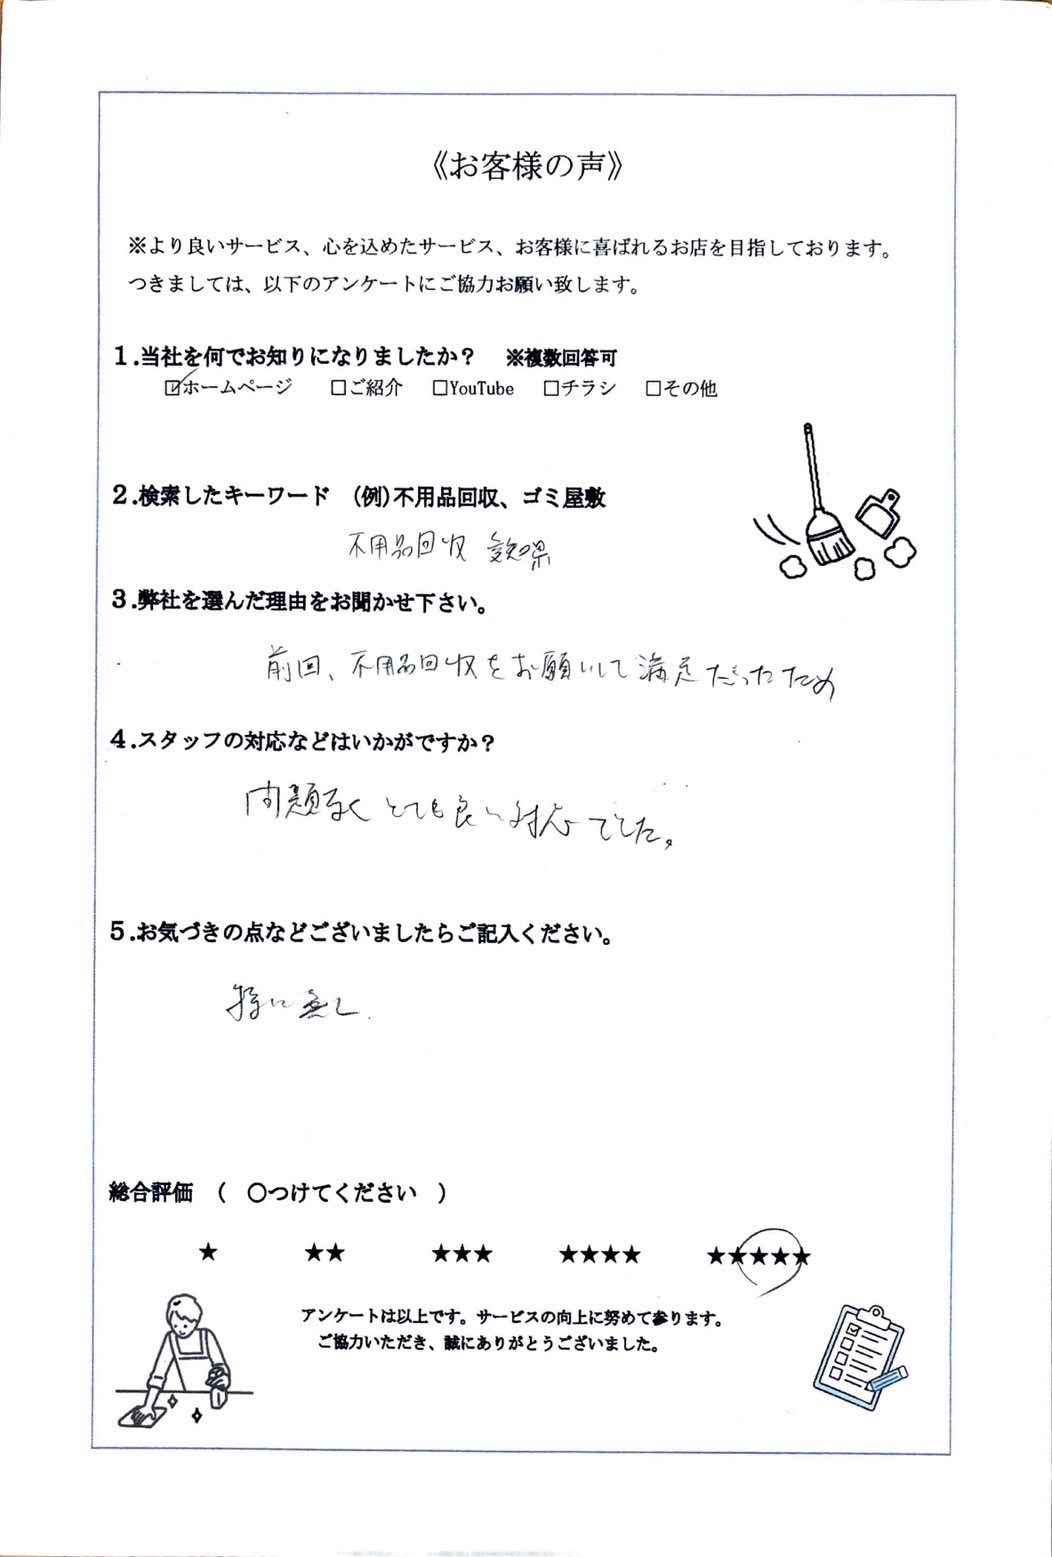 《お客様の声》
※より良いサービス、心を込めたサービス、お客様に喜ばれるお店を目指しております。
つきましては、以下のアンケートにご協力お願い致します。
１.当社を何でお知りになりましたか？　※複数回答可
☑ホームページ　□ご紹介　□YouTube　□チラシ　□その他
２.検索したキーワード　(例)不用品回収、ゴミ屋敷
不用品回収 愛知県
３.弊社を選んだ理由をお聞かせ下さい。
前回、不用品回収をお願いして満足だったため
４.スタッフの対応などはいかがですか？
問題なく とても良い対応でした。
５.お気づきの点などございましたらご記入ください。
特に無し.
総合評価　（　〇つけてください　）
★　★★　★★★　★★★★　★★★★★
アンケートは以上です。サービスの向上に努めて参ります。
ご協力いただき、誠にありがとうございました。